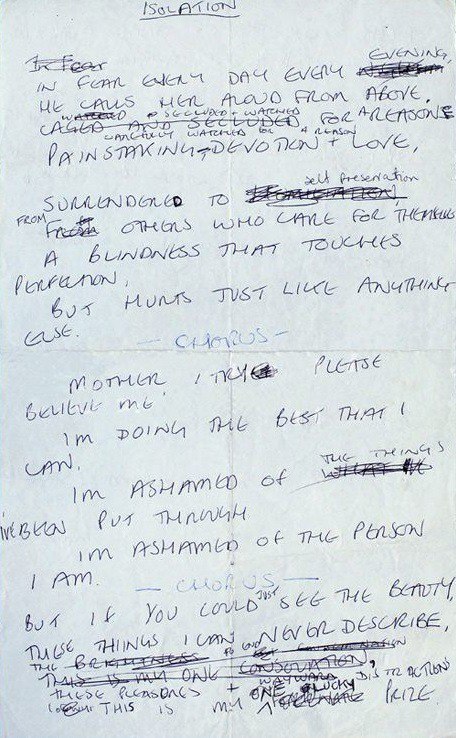 ISOLATION
In Fear
EVENING,
IN FEAR EVERY DAY EVERY
HE CALLS HER ALOUD FROM ABOVE,
WATCHED + SECLUDED + WATCHED
CAGED AND SECLUDED FOR A REASON
CAREFULLY WATCHED FOR A REASON
PAINSTAKING DEVOTION + LOVE,
self preservation
SURRENDERED TO
FROM OTHERS WHO CARE FOR THEMSELVES
A BLINDNESS THAT TOUCHES
PERFECTION,
BUT HURTS JUST LIKE ANYTHING
ELSE.
— CHORUS —
MOTHER I TRY PLEASE
BELIEVE ME,
IM DOING THE BEST THAT I
CAN.
THE THINGS
IM ASHAMED OF
IVE BEEN PUT THROUGH
IM ASHAMED OF THE PERSON
I AM.
— CHORUS —
JUST
BUT IF YOU COULD SEE THE BEAUTY,
THESE THINGS I CAN NEVER DESCRIBE,
THE BRIGHTNESS
THIS IS MY ONE CONSOLATION,
THESE PLEASURES + WAYWARD DISTRACTIONS
ONE LUCKY
THIS IS MY PRIZE.